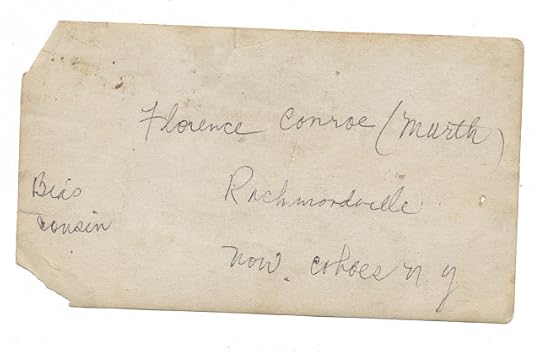 Florence Conroe (Murth)
Bea's
cousin
Richmondville
now. cohoes n y